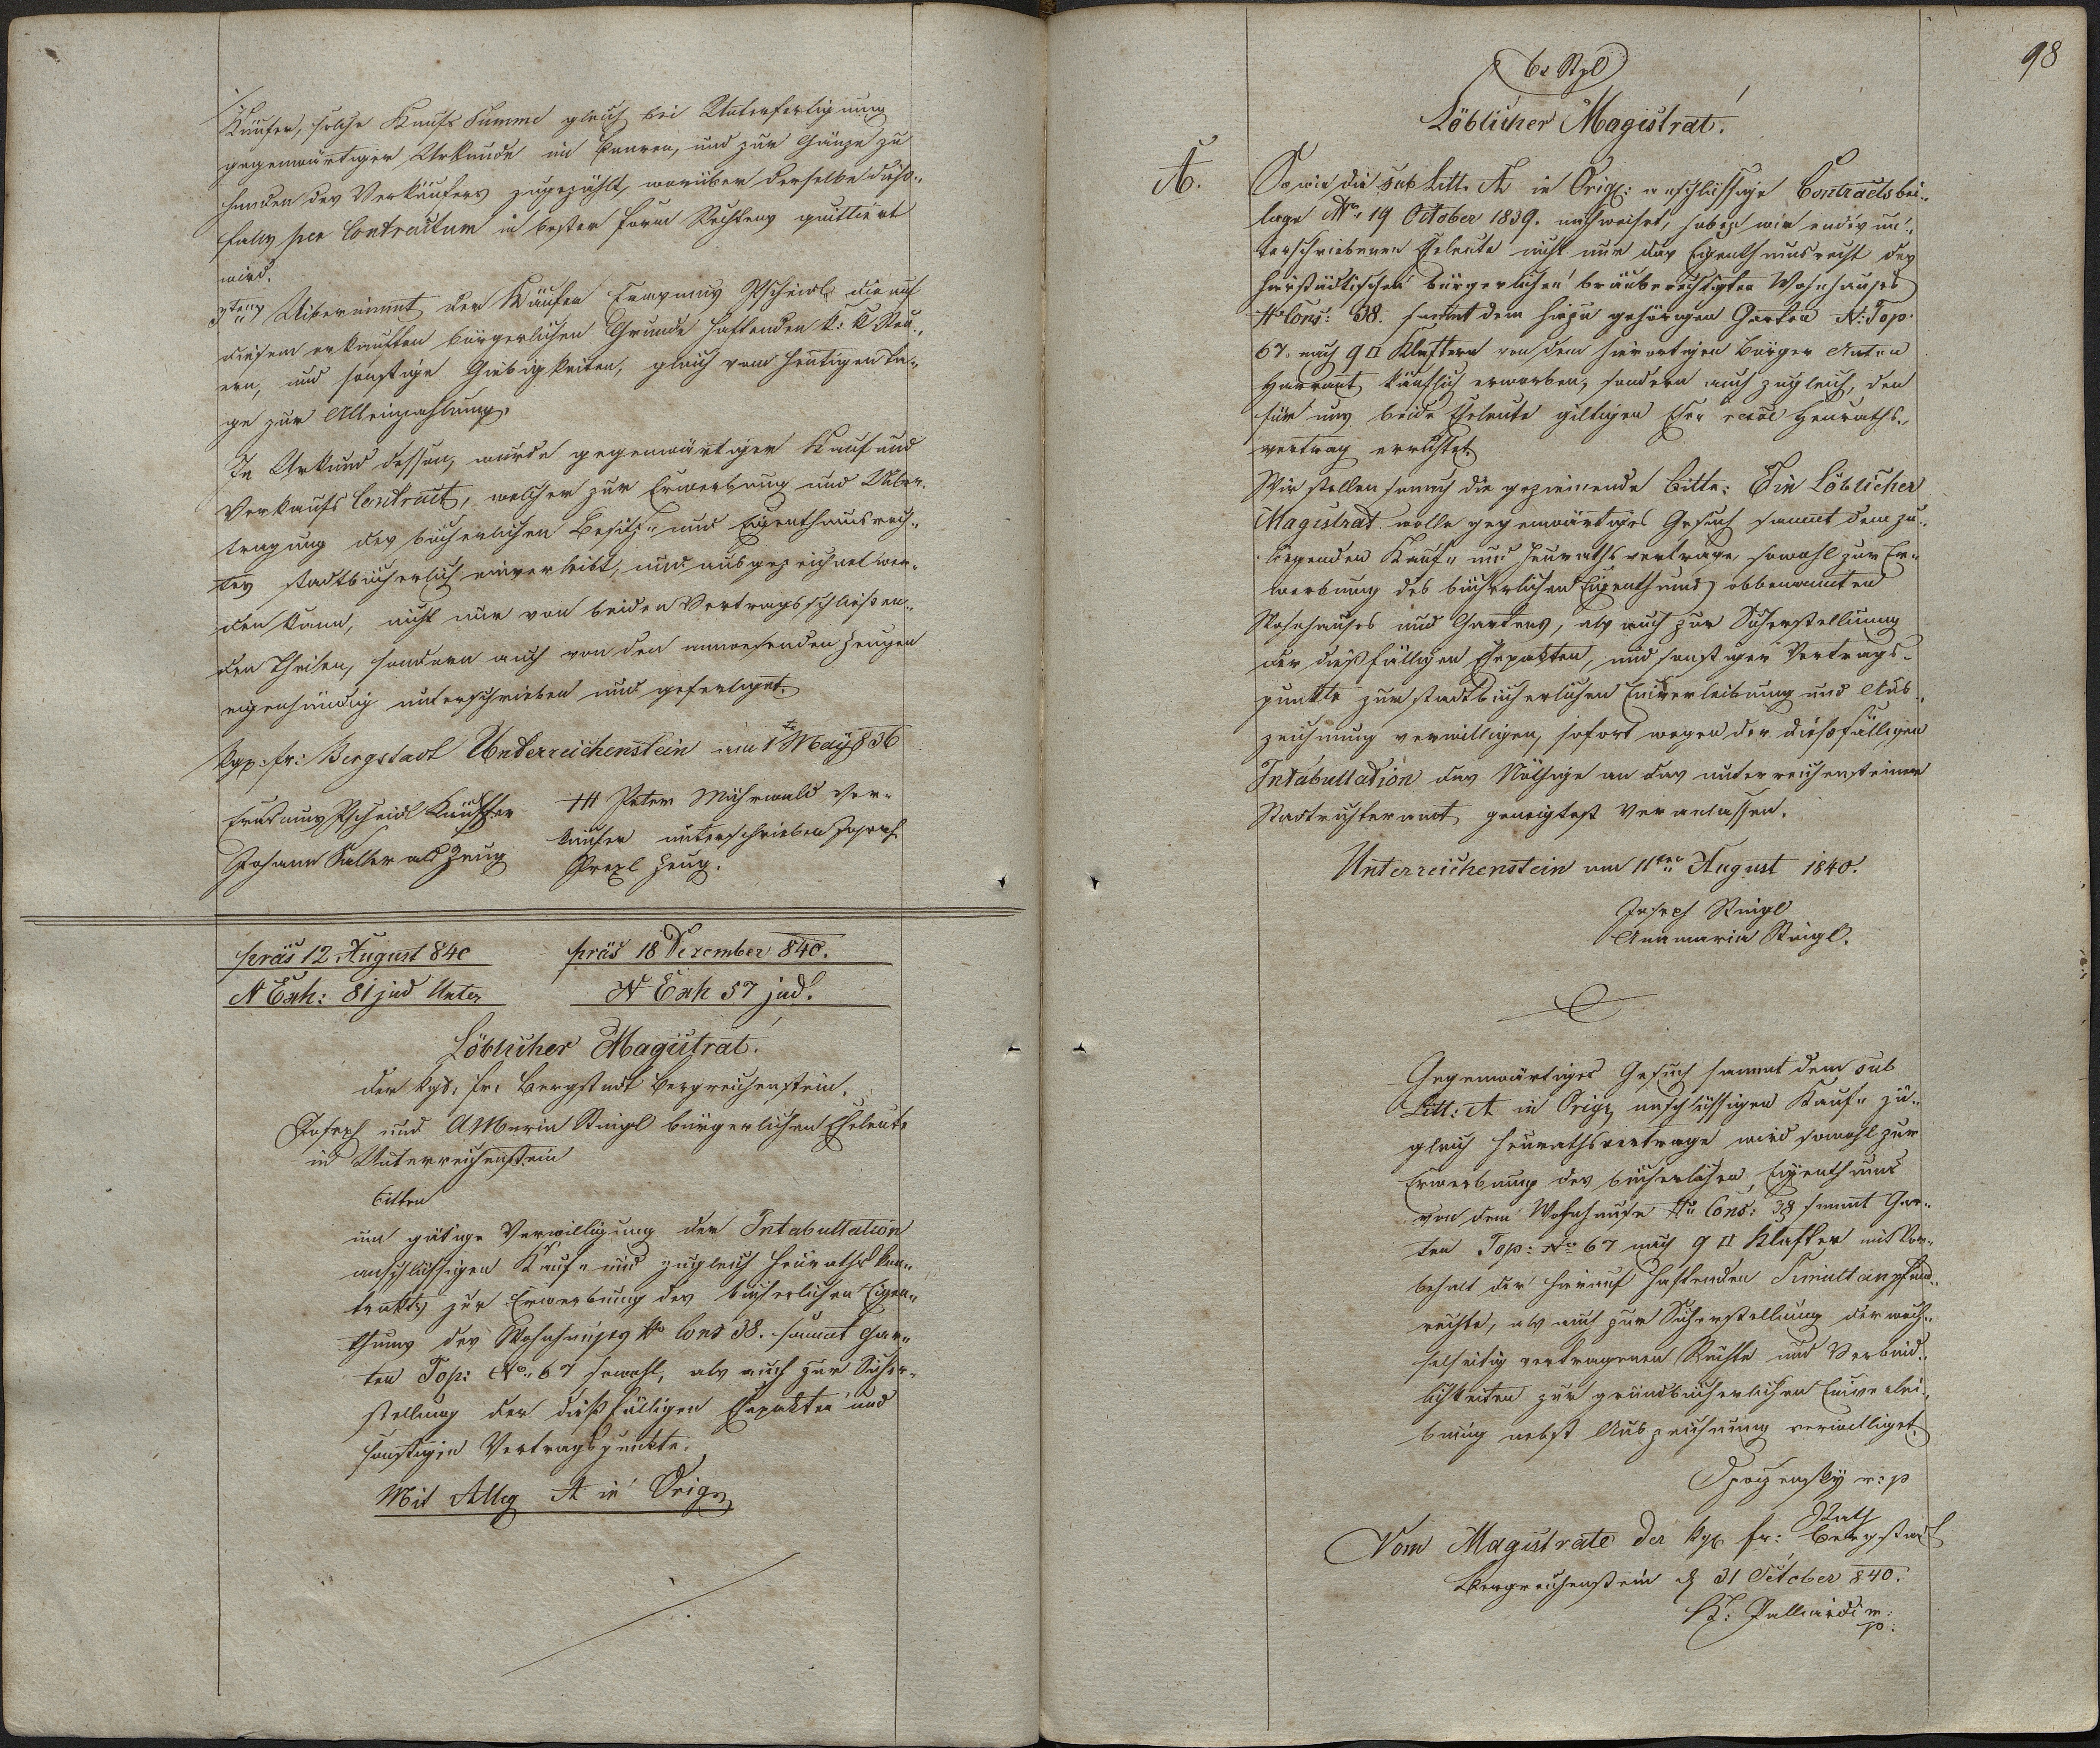 Käufer, solche Kaufs Summe gleich bei Unterfertigung
gegenwärtiger Urkunde im baaren, und zur Gänze zu
handen des Verkäufers zugezählt, worüber derselbe dieß„
falls per Contractum in bester Form Rechtens quittiert
wird.
3tens Uibernimmt der Käufer Erasmus Pscheidl die auf
diesem erkauften bürgerlichen Grunde haftenden k: k Steu„
ern, und sonstige Giebigkeiten, gleich vom heutigen Ta„
ge zur Alleinzahlung.
In Urkund dessen, wurde gegenwärtiger Kauf und
Verkaufs Contract, welcher zur Erwerbung und Uiber„
tragung des bücherlichen Besitz„ und Eigenthumsrech„
tes stadtbücherlich einverleibt, und ausgezeichnet wer„
den kann, nicht nur von beiden Vertragsschließen„
den Theilen, sondern auch von den anwesenden Zeugen
eigenhändig unterschrieben und gefertiget.
Kgx: fr: Bergstadt Unterreichenstein am 1ten May 836
Erasmus Pscheidl Käufer
Johann Saller als Zeug
+++ Peter Mühwald Ver„
käufer unterschrieben Joseph
Prexl Zeug.
präs 12 August 840
N Exh: 81 jud Unter
präs 18 Dezember 840.
N Exh 57 jud.
Löblicher Magistrat!
der kgx. fr: Bergstadt Bergreichenstein.
Joseph und AMaria Steigl bürgerlichen Eheleute
in Unterreichenstein
bitten
um gütige Verwilligung der Intabullation
anschlüssigen Kauf„ und zugleich Heuraths kon„
trakts zur Erwerbung des bücherlichen Eigen„
thums des Wohnhauses No Cons 38. sammt Gar„
ten Top: No 67 sowohl, als auch zur Sicher„
stellung der dießfälligen Ehepakten und
sonstigen Vertragspunkte.
Mit Alleg A in Orig
98
6x Stpl
Löblicher Magistrat!
A.
So wie die sub Litt. A in Orig: anschlüssige Contractsbei„
lage dto 19 October 1839. nachweiset, haben wir endes un„
terschriebenen Eheleute nicht nur das Eigenthumsrecht des
hierstädtischen bürgerlichen bräuberechtigten Wohnhauses
No Cons: 38. sammt dem hiezu gehörigen Garten N: Top.
67. nach 9 □ Klaftern von dem hierortigen Bürger Anton
Harrant käuflich erworben, sondern auch zugleich, den
für uns beide Eheleute giltigen Ehe„ Heuraths„
vertrag errichtet.
Wir stellen sonach die geziemende Bitte: Ein Löblicher
Magistrat wolle gegenwärtiges Gesuch sammt dem zu„
liegenden Kauf„ und Heurathsvertrage, sowohl zur Er„
werbung des bücherlichen Eigenthums obbenannten
Wohnhauses und Gartens, als auch zur Sicherstellung
der dießfälligen Ehepakten, und sonstigen Vertrags„
punkte zur stadtbücherlichen Einverleibung und Aus„
zeichnung verwilligen, sofort wegen der dießfälligen
Intabullation das Nöthige an das unterreichensteiner
Stadtrichteramt geneigtest veranlassen.
Unterreichenstein am 11ten August 1840.
Joseph Steigl
Annamaria Steigl.
Gegenwärtiges Gesuch sammt dem sub
Litt: A in Orig: anschlüssigen Kauf„ zu„
gleich Heurathsvertrage wird sowohl zur
Erwerbung des bücherlichen Eigenthums
von dem Wohnhause No Cons: 38 sammt Gar„
ten Top: No 67 nach 9 □ Klafter mit Vor„
behalt der hierauf haftenden Simultanpfand„
rechte, als auch zur Sicherstellung der wech„
selseitig vertragenen Rechte und Verbind„
lichkeiten zur grundbücherlichen Einverlei„
bung nebst Auszeichnung verwilliget.
m: p
Rath
Vom Magistrate der kgx fr: Bergstadt
Bergreichenstein d 31 October 840.
K: Palliardi m:
p: